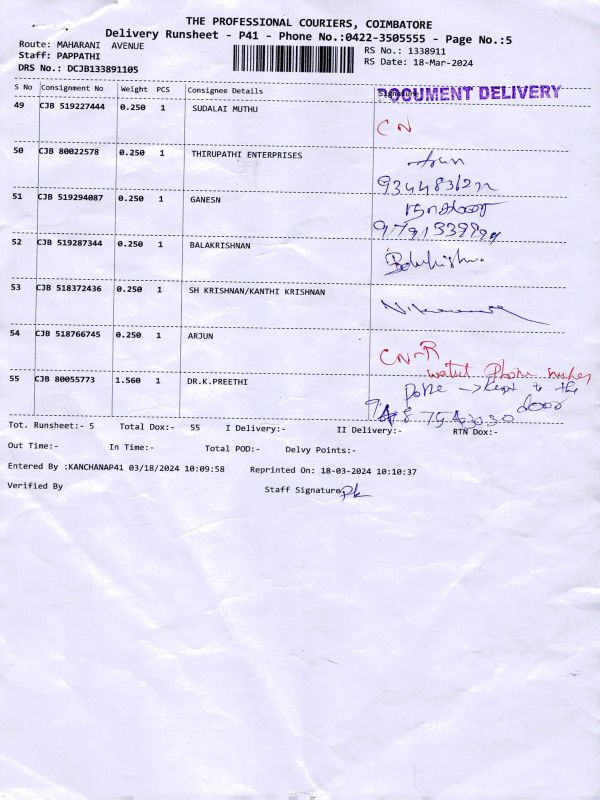 THE PROFESSIONAL COURIERS, COIMBATORE
Delivery Runsheet - P41 - Phone No.:0422-3505555 - Page No.:5
Route: MAHARANI AVENUE
RS No.: 1338911
Staff: PAPPATHI
RS Date: 18-Mar-2024
DRS No.: DCJB133891105
S No Consignment No Weight PCS Consignee Details Signature
DOCUMENT DELIVERY
49 CJB 519227444 0.250 1 SUDALAI MUTHU
CN
50 CJB 80022578 0.250 1 THIRUPATHI ENTERPRISES
51 CJB 519294087 0.250 1 GANESN
52 CJB 519287344 0.250 1 BALAKRISHNAN
53 CJB 518372436 0.250 1 SH KRISHNAN/KANTHI KRISHNAN
54 CJB 518766745 0.250 1 ARJUN
CN-R
Phone
55 CJB 80055773 1.560 1 DR.K.PREETHI
to the
door
Tot. Runsheet:- 5 Total Dox:- 55 I Delivery:- II Delivery:- RTN Dox:-
Out Time:- In Time:- Total POD:- Delvy Points:-
Entered By :KANCHANAP41 03/18/2024 10:09:58 Reprinted On: 18-03-2024 10:10:37
Verified By Staff Signature Pk